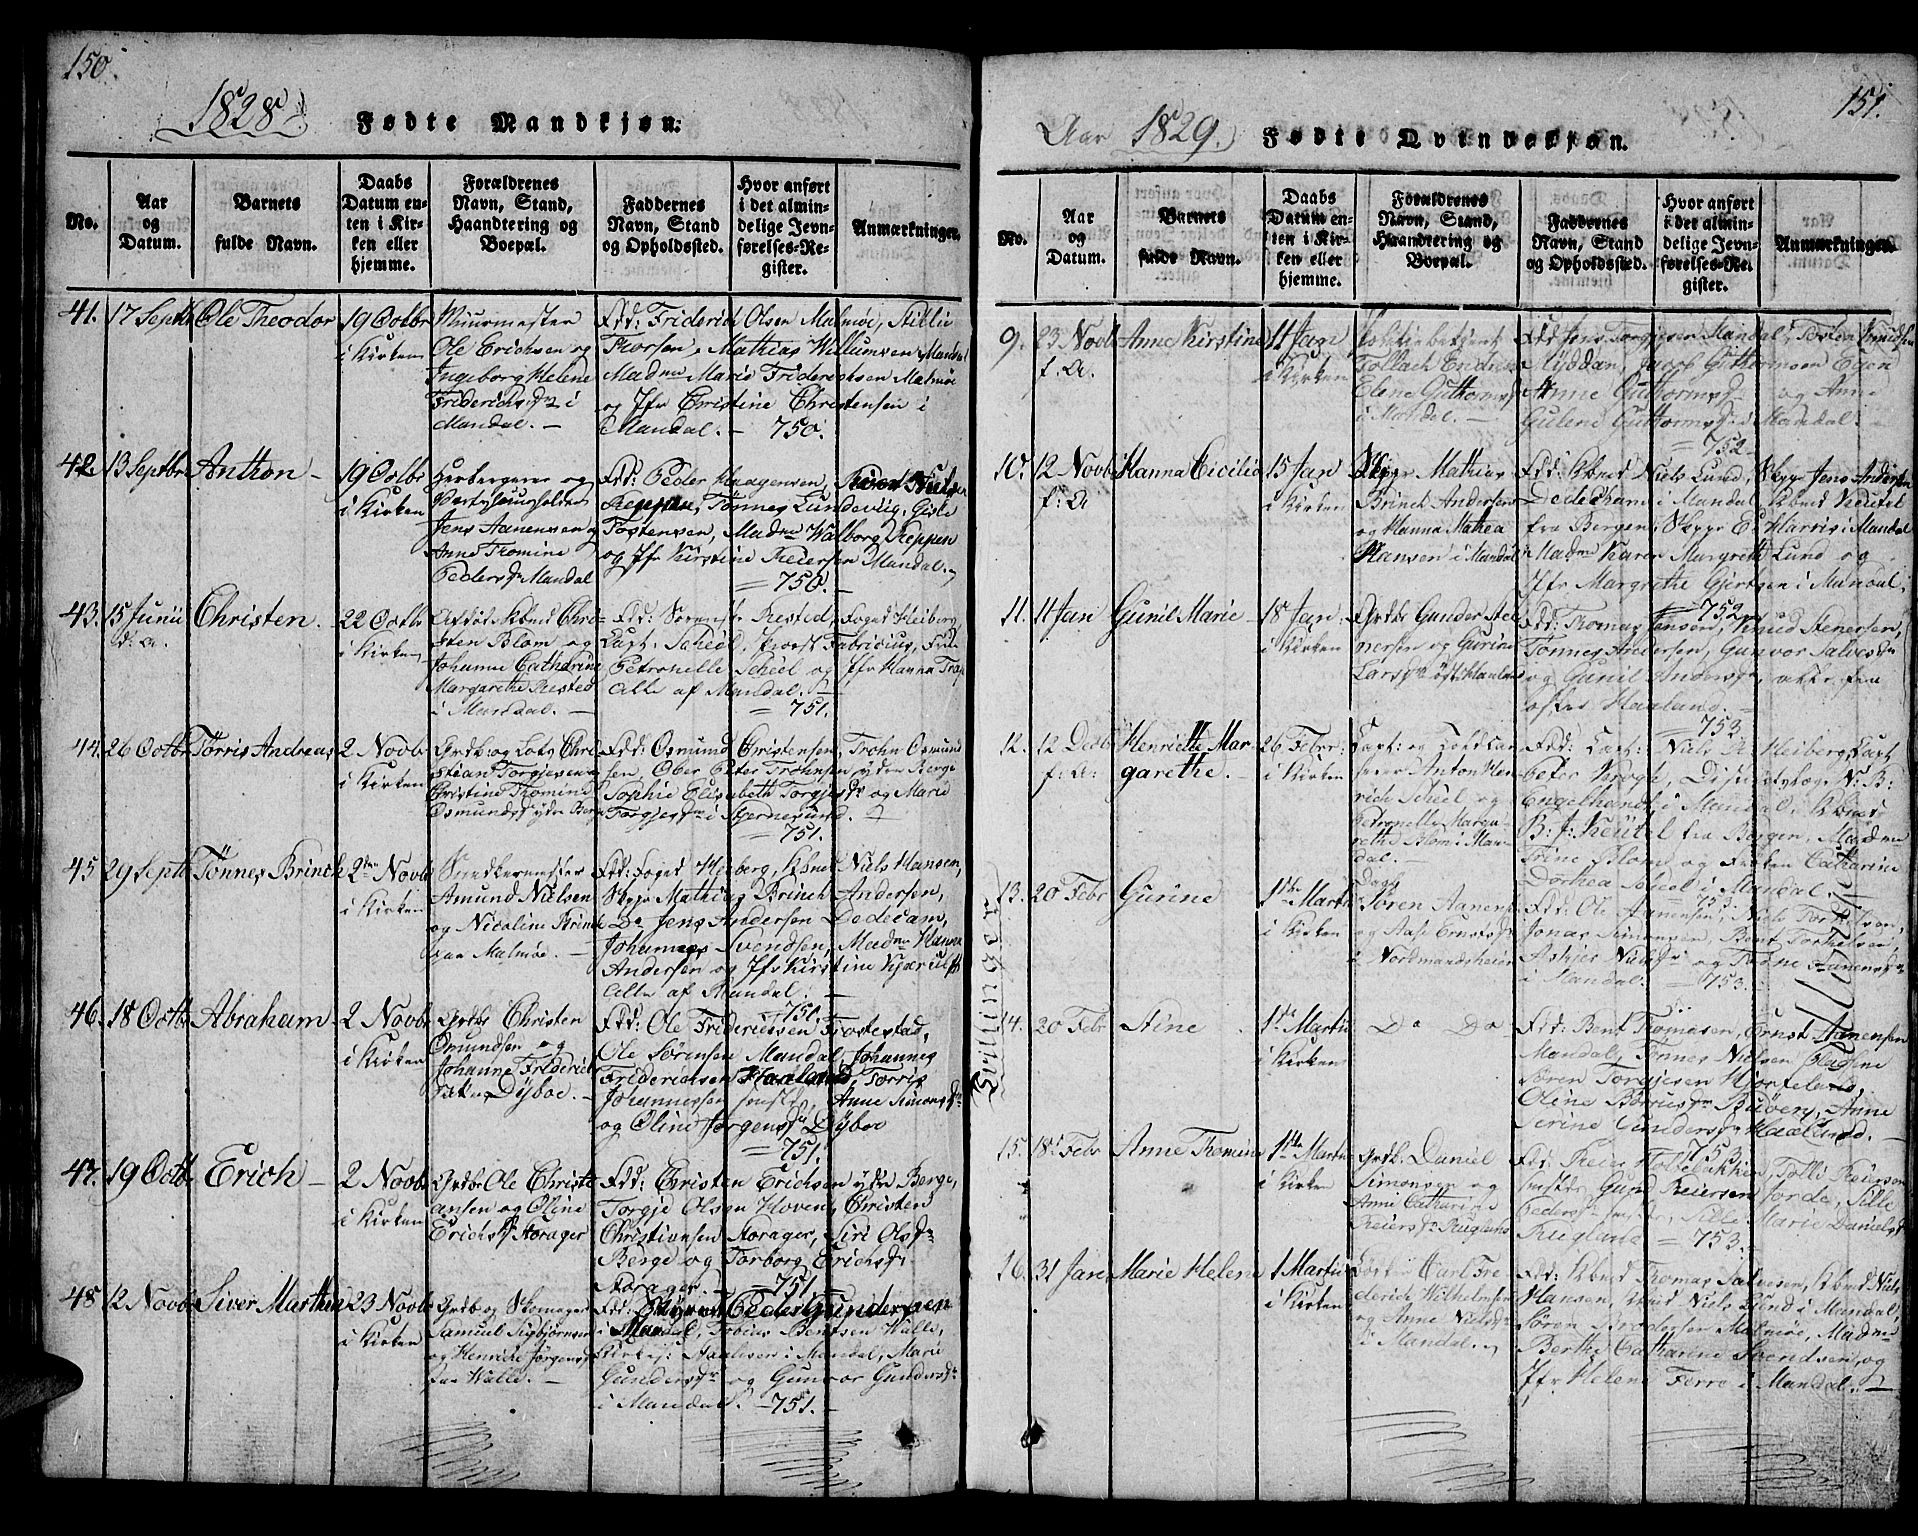 150.
1828
Fødte Mandkjøn.
No.
Aar og Datum.
Barnets fulde Navn.
Daabs Datum enten i Kirken eller hjemme.
Forældrenes Navn, Stand, Haandtering og Boepæl.
Faddernes Navn, Stand og Opholdssted.
Hvor anført i det almindelige Jevnførelses-Register.
Anmærkninger.
41. 17 Septb Ole Theodor 19 Octbr i Kirken
Muurmester
Ole Erichsen og
Ingeborg Helene
Friderichs i
Mandal. —
Fdd: Friderich Olsen Malmøe,
Thorsen, Mathias Willumsen, Mandal
Madme Marie Friderichsen Malmøe
og Jfr Christine Christensen i
Mandal. — 750.
42. 13 Septbr Anthon — 19 Octbr i Kirken
Herbergerer og
Jens Aanensen og
Anne Thomine
Peders Mandal
Fdd: Peder Haagensen,
Reppen, Tønnes Lundevig, Giske
Tostensen, Madme Walborg Reppen
og Jfr Kirstine Reiersen Mandal.
= 750.
43. 15 Junii Christen. 22 Octbr i Kirken
Afdøde Kbmd Chri-
sten Blom og
Johanne Cathdrine
Margarethe Rested
i Mandal. —
Fdd: Rested, Foged Heiberg
Capt: Scheel, Provst Fabricius, Frue
Petronelle Scheel og Jfr Hanna
Alle af Mandal. —
= 751.
44. 26 Octbr Tørris Andreas 2 Novbr i Kirken
Grdbr og Lods Chri-
stian Torgjesen
Christine Thomine
Osmunds ydre Berge
Fdd: Osmund Christensen, Trohn Osmund
sen, Ober Peter Trohnsen ydre Berge
Sophie Elisabeth Torgjes og Marie
Torgjes i Skjernesund.
= 751.
45 29 Septb Tønnes Brinch 2den Novbr i Kirken
Amund Nielsen
og Nicoline Brinch
paa Malmøe. —
Fdd: Foged Heiberg, Kbmd Niels Hansen,
Skpr Mathias Brinch Andersen,
Do Jens Andersen Dedecam,
Johannes Svendsen, Madme Hanna
Andersen og Jfr Kirstine Kjærulff
Alle af Mandal. —
751.
46. 18 Octbr Abraham — 2 Novbr i Kirken
Grdbr Christen
Osmundsen og
Johanne Frideric
Dyboe. —
Fdd: Ole Friderichsen Trostestad,
Ole Sørensen Mandal, Johannes
Friderichsen Haaland, Torris
Johannessen Anne Simons
og Oline Jørgens Dyboe
= 751.
47. 19 Octb Erich — 2 Novbr i Kirken
Grdbr Ole Christi
ansen og Oline
Erichs Storager
Fdd: Christen Erichsen ydre Berge,
Torgje Olsen Hoven, Christen
Christiansen Storager, Siri Ols
Berge og Torborg Erichs
Storager. — 751.
48. 12 Novbr Siver Marthin 23 Novbr i Kirken
Grdbr og Skomager
Samuel Sigbjørnsen
og Henriche Jørgens
paa Walle. —
Fdd: Peder Gundersen
i Mandal, Tobias Bentsen Walle,
Aalesen i Mandal, Marie
Gunders og Gunvor Gunders
i Mandal. — 751. —
151.
Aar 1829. Fødte Qvindekjøn.
No.
Aar og Datum.
Barnets fulde Navn.
Daabs Datum enten i Kirken eller hjemme.
Forældrenes Navn, Stand, Haandtering og Boepæl.
Faddernes Navn, Stand og Opholdssted.
Hvor anført i det almindelige Jevnførelses-Register.
Anmærkninger.
9. 23 Novb f. A. Anne Kirstine 11 Jan i Kirken
Tollach Endres
Elene Guttorms
i Mandal. —
Fdd Jens Torgjesen Mandal, Tosten Knudsen
Myddan, Jacob Guttormsen Egen
Anne Guttorms og Anne
Gulene Guttorms i Mandal. —
= 752
10. 12 Novbr f: A Hanna Cicilia 15 Jan i Kirken
Skpr Mathias
Brinch Andersen
og Hanna Mathea
Hansen i Mandal
Fdd: Kbmd Niels Lund, Skpr Jens Andersen
Dedekham i Mandal Kbmd Keutel
fra Bergen, Skpr C Harris i Mandal
Madme Karen Margrethe Lund og
Jfr Margrethe Gjertsen i Mandal.
= 752
11. 11 Jan Gunil Marie — 18 Jan: i Kirken
Grdbr Gunder Ste
nersen og Gurine
Lars øst Haaland
Fdd: Thomas Jensen, Knud Stenersen,
Tønnes Andersen, Gunvor Salves
og Gunil Anders, alle fra
østre Haaland. —
= 753
12. 12 Decbr f: A: Henriette Mar
garethe. 26 Febr: i Kirken
Capt: og Toldcas
serer Anton Hen
rich Scheel og
Petronelle Marga
rethe Blom i Man
dal. —
Fdd: Capt: Niels Heiberg, Capt
Peter Krogh, N: B:
Engelhardt i Mandal, Kbmd
B: J: Keutel fra Bergen, Madme
Trine Blom og Frøken Catharine
Dorthea Scheel i Mandal. —
= 753.
13. 20 Febr Gurine 1ste Martii i Kirken
Dagl
Søren Aanens
og Aase Ernsts
i Nordmandsheien
Fdd: Ole Aanensen, Niels
Jonas Simonsen, Bent Torkelsen,
Askjer Niels og Trone Aanens
i Mandal. — = 753. —
Tvillinger
14. 20 Febr Stine 1ste Martii i Kirken
Do Do
Fdd: Bent Thomasen, Ernst Aanensen
Mandal, Tønnes Nielsen
Søren Torgjesen Hjorteland,
Oline Børrus Buøen, Anne
Serine Anders Haaland. —
= 753
15. 18 Febr Anne Thomine 1ste Martii i Kirken
Grdbr: Daniel
Simonsen og
Anne Catharine
Reiers Rugland
Fdd: Reier Holtebekken, Tolli Reiersen
Gund Reiersen Jorde, Sille
Peders Sille Marie Daniels
Rugland = 753. —
16. 31 Jan Marie Helene 1 Martii i Kirken
Carl Fre
derich Wilhelmsen
og Anne Niels
i Mandal.
Fdd: Kbmd Thomas Salvesen, Kbmd Niels
Hansen, Kbmd Niels Lund i Mandal
Søren Brodersen Malmøe, Madme
Berthe Catharine Svendsen, og
Jfr Helene Ferre i Mandal. —